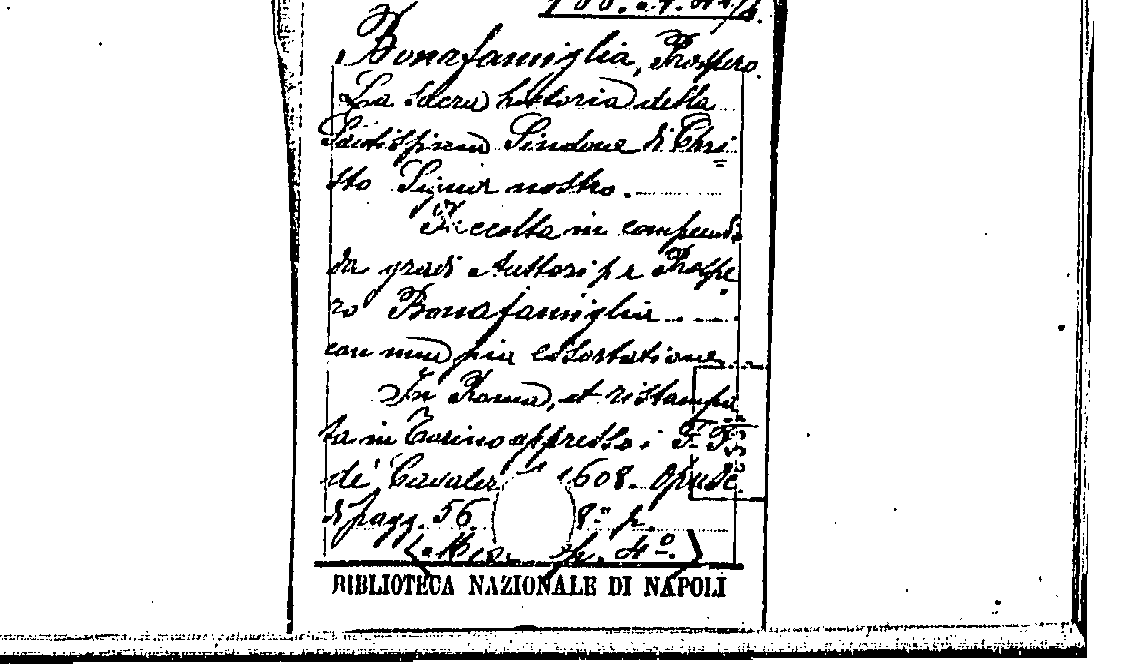 Bonafamiglia, Prospero.
La sacra historia della
Santissima Sindone di Chri
sto Signor nostro.
Raccolta in compendio
da gravi Auttori per Prospe
ro Bonafamiglia
con una pia essortatione
In Roma, et ristampa
ta in Torino appresso i F. F.
de' Cavaler 1608. Opusc.
di pagg. 56. 8° p.
4°.
BIBLIOTECA NAZIONALE DI NAPOLI